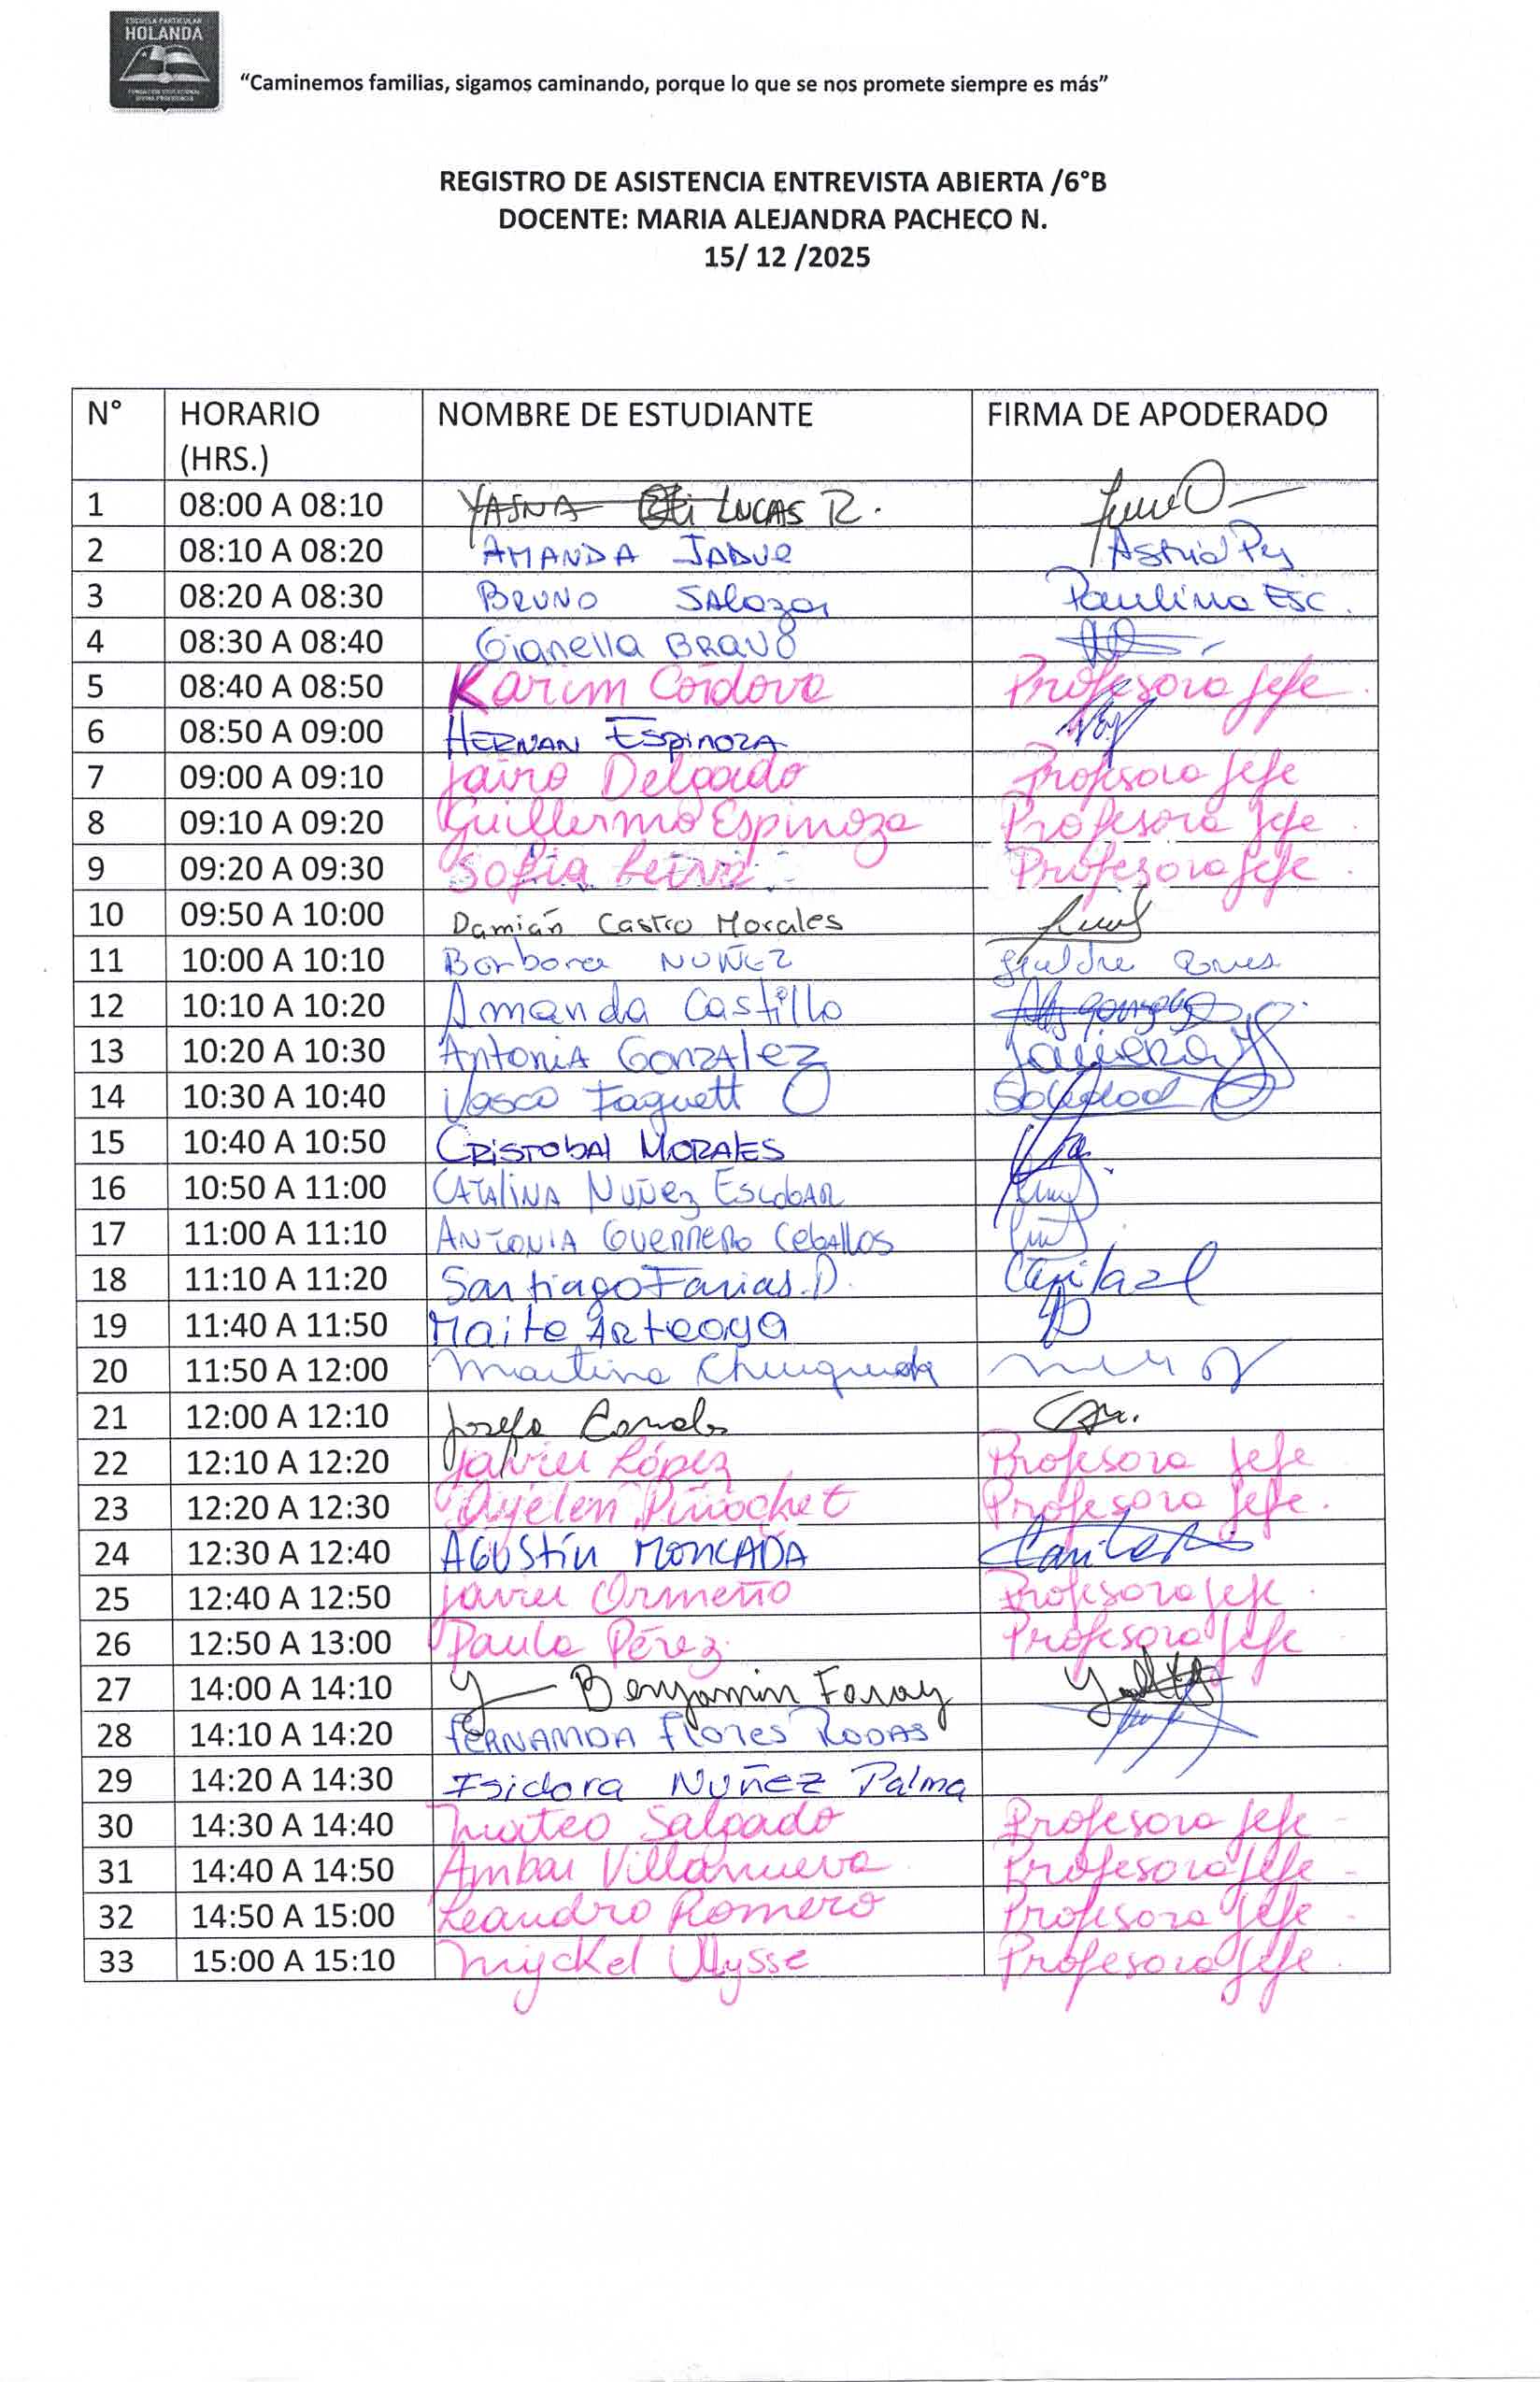 ESCUELA PARTICULAR
HOLANDA
FUNDACIÓN EDUCACIONAL
DIVINA PROVIDENCIA
“Caminemos familias, sigamos caminando, porque lo que se nos promete siempre es más”
REGISTRO DE ASISTENCIA ENTREVISTA ABIERTA /6°B
DOCENTE: MARIA ALEJANDRA PACHECO N.
15/ 12 /2025
N° HORARIO (HRS.) NOMBRE DE ESTUDIANTE FIRMA DE APODERADO
1 08:00 A 08:10 YASNA LUCAS R.
2 08:10 A 08:20 AMANDA JADUE Astrid
3 08:20 A 08:30 BRUNO SAlazar Paulina Esc.
4 08:30 A 08:40 Gianella BRAVO
5 08:40 A 08:50 Karim Córdova Profesora Jefe.
6 08:50 A 09:00 HERNAN EspinozA
7 09:00 A 09:10 Jairo Delgado Profesora Jefe
8 09:10 A 09:20 Guillermo Espinoza Profesora Jefe.
9 09:20 A 09:30 Sofia Leiva Profesora Jefe.
10 09:50 A 10:00 Damián Castro Morales
11 10:00 A 10:10 Barbara NUÑEZ
12 10:10 A 10:20 Amanda Castillo
13 10:20 A 10:30 AntoniA GonzAlez
14 10:30 A 10:40 Vasco Faguett Soledad
15 10:40 A 10:50 CRISTObAl MORAlES
16 10:50 A 11:00 CATAliNA NUÑEz EscobAR
17 11:00 A 11:10 ANTONIA GUERRERO CebAllos
18 11:10 A 11:20 Santiago Farias.D.
19 11:40 A 11:50 Maite ARteaga
20 11:50 A 12:00 Martina
21 12:00 A 12:10 Josefa Canales
22 12:10 A 12:20 Javier López Profesora Jefe
23 12:20 A 12:30 Ayelen Pinochet Profesora Jefe.
24 12:30 A 12:40 AGUStín MONCADA
25 12:40 A 12:50 Javier Ormeño Profesora Jefe.
26 12:50 A 13:00 Paula Pérez. Profesora Jefe
27 14:00 A 14:10 Benjamin Faray
28 14:10 A 14:20 FERNANDA Flores RODAS
29 14:20 A 14:30 Isidora NUÑEZ Palma
30 14:30 A 14:40 Mateo Salgado Profesora Jefe -
31 14:40 A 14:50 Ambar Villanueva Profesora Jefe -
32 14:50 A 15:00 Leandro Romero Profesora Jefe -
33 15:00 A 15:10 Myckel Ulysse Profesora Jefe.